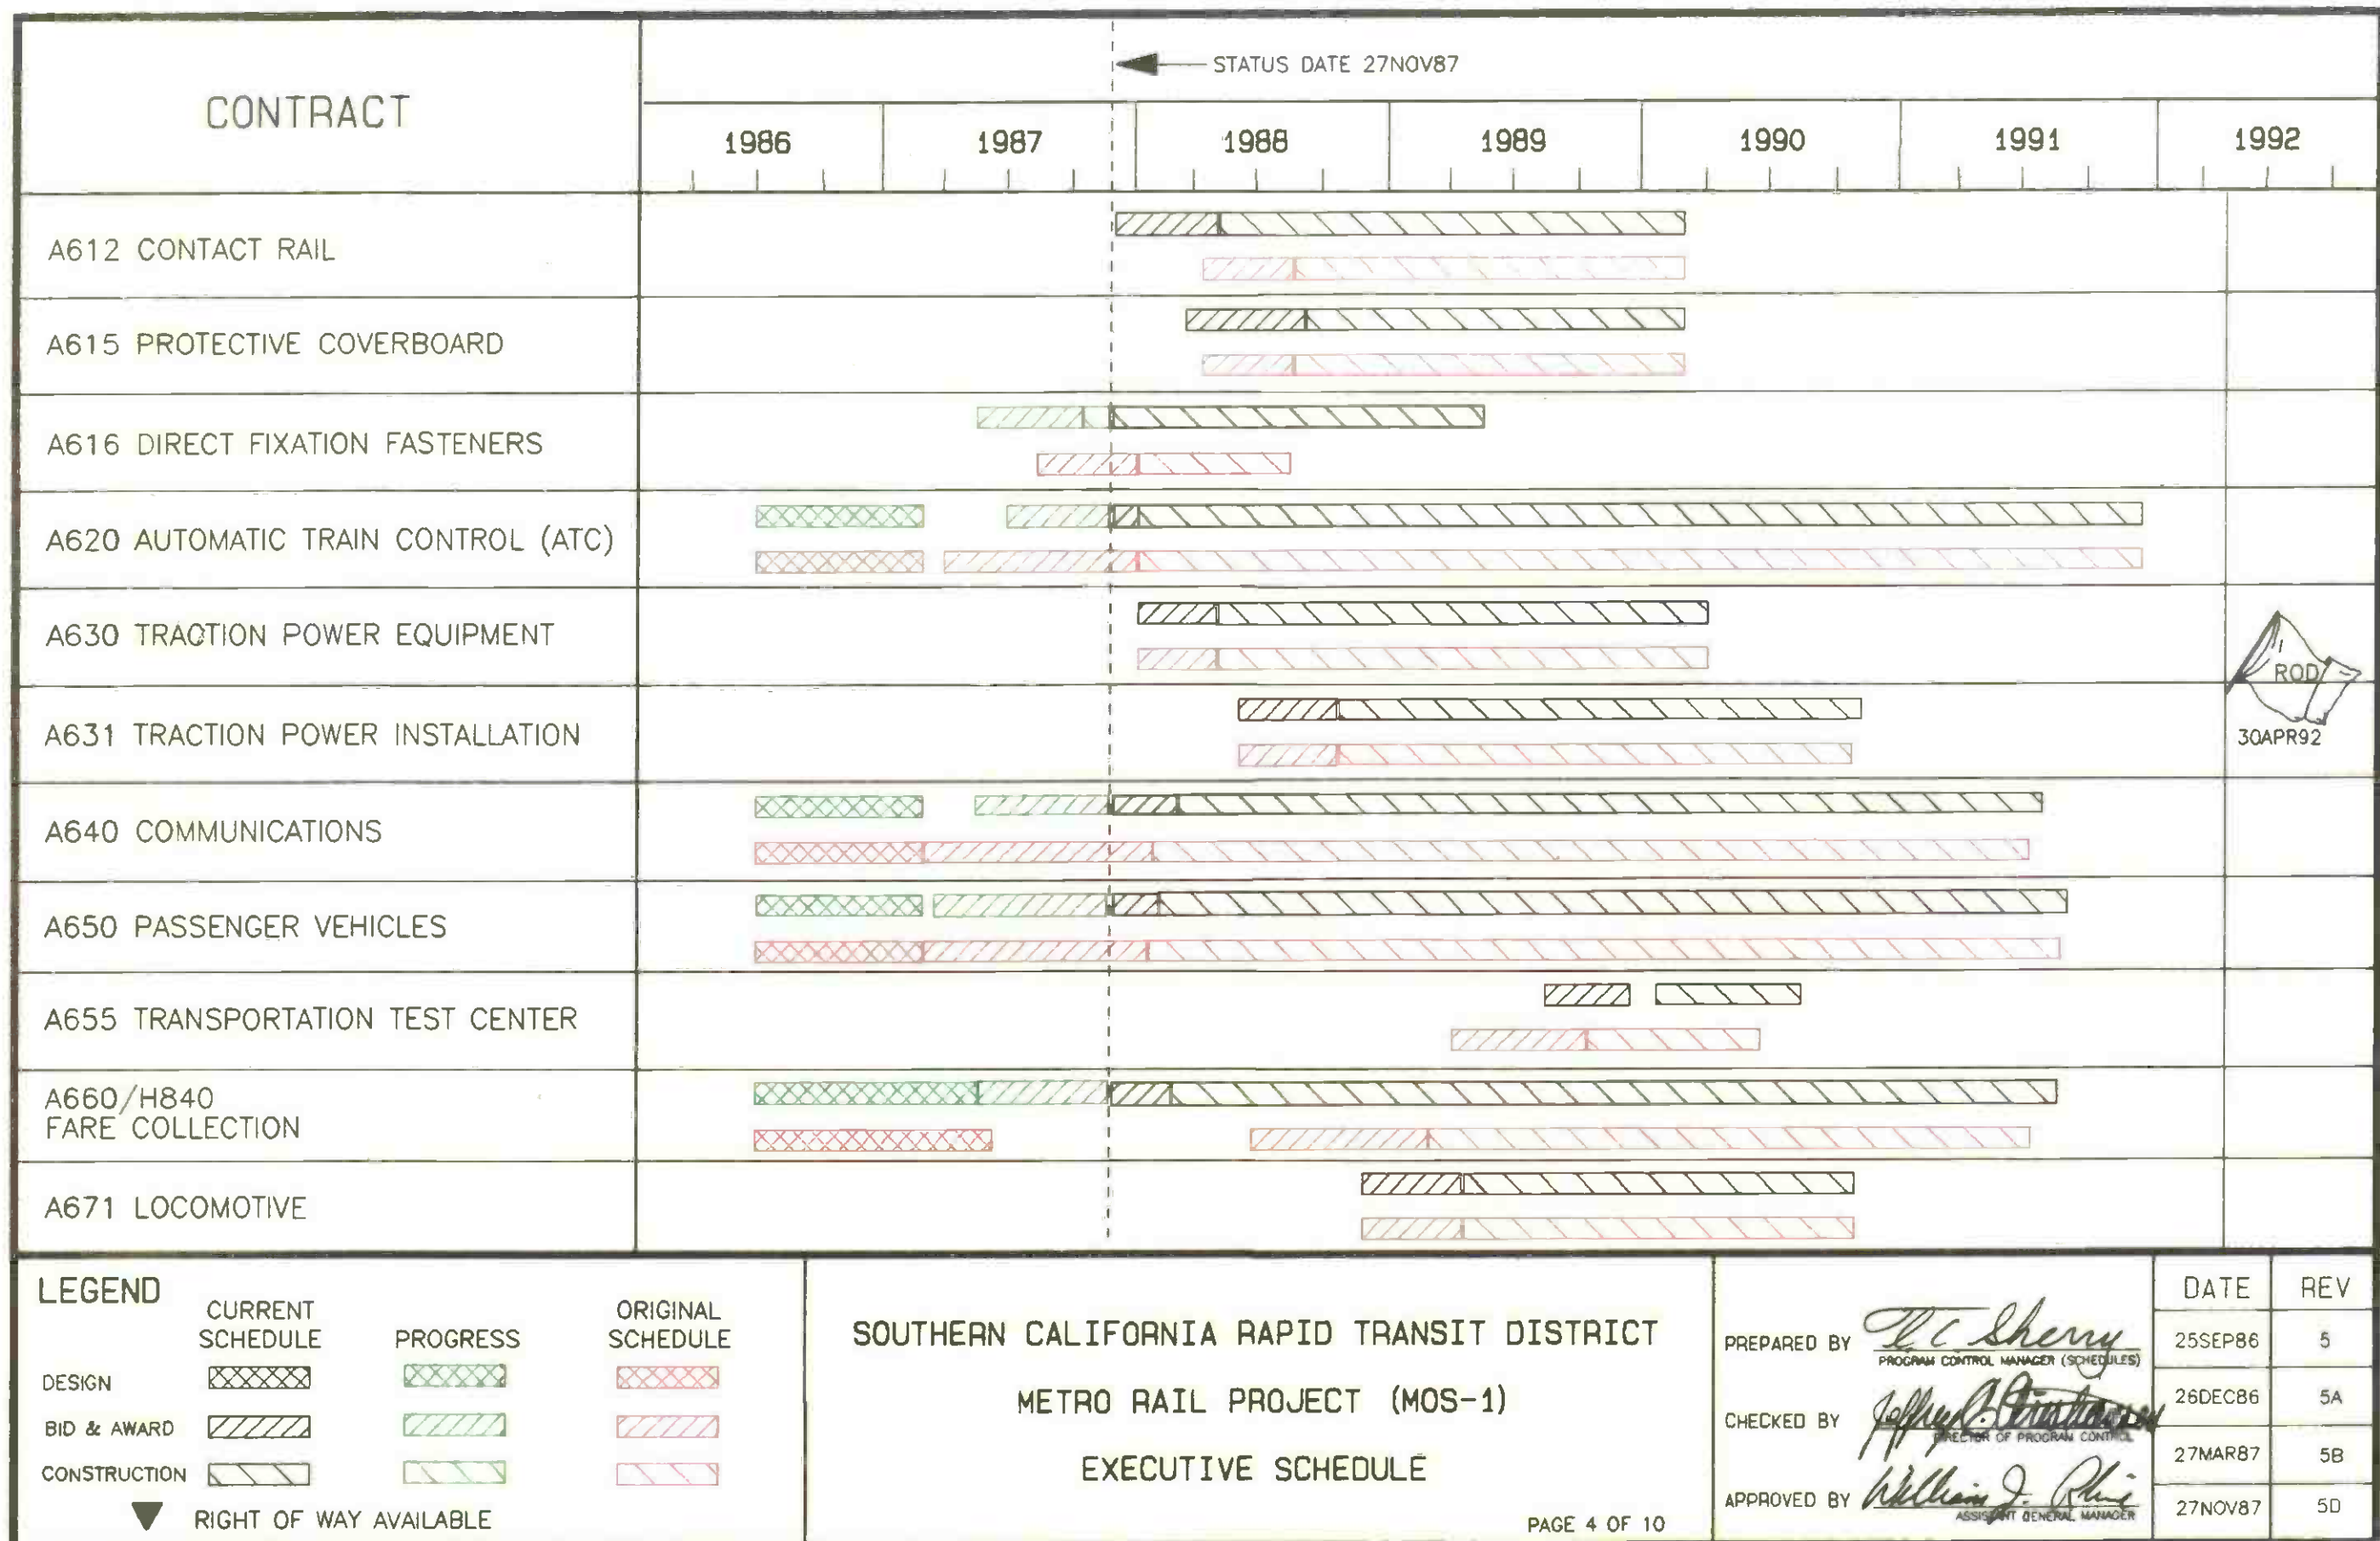 CONTRACT
STATUS DATE 27NOV87
1986 1987 1988 1989 1990 1991 1992
A612 CONTACT RAIL
A615 PROTECTIVE COVERBOARD
A616 DIRECT FIXATION FASTENERS
A620 AUTOMATIC TRAIN CONTROL (ATC)
A630 TRACTION POWER EQUIPMENT
ROD
A631 TRACTION POWER INSTALLATION
30APR92
A640 COMMUNICATIONS
A650 PASSENGER VEHICLES
A655 TRANSPORTATION TEST CENTER
A660/H840
FARE COLLECTION
A671 LOCOMOTIVE
LEGEND
CURRENT
SCHEDULE
PROGRESS
ORIGINAL
SCHEDULE
DESIGN
BID & AWARD
CONSTRUCTION
RIGHT OF WAY AVAILABLE
SOUTHERN CALIFORNIA RAPID TRANSIT DISTRICT
METRO RAIL PROJECT (MOS-1)
EXECUTIVE SCHEDULE
PAGE 4 OF 10
PREPARED BY Sherry
PROGRAM CONTROL MANAGER (SCHEDULES)
CHECKED BY Jeffrey
DIRECTOR OF PROGRAM CONTROL
APPROVED BY William J.
ASSISTANT GENERAL MANAGER
DATE REV
25SEP86 5
26DEC86 5A
27MAR87 5B
27NOV87 5D